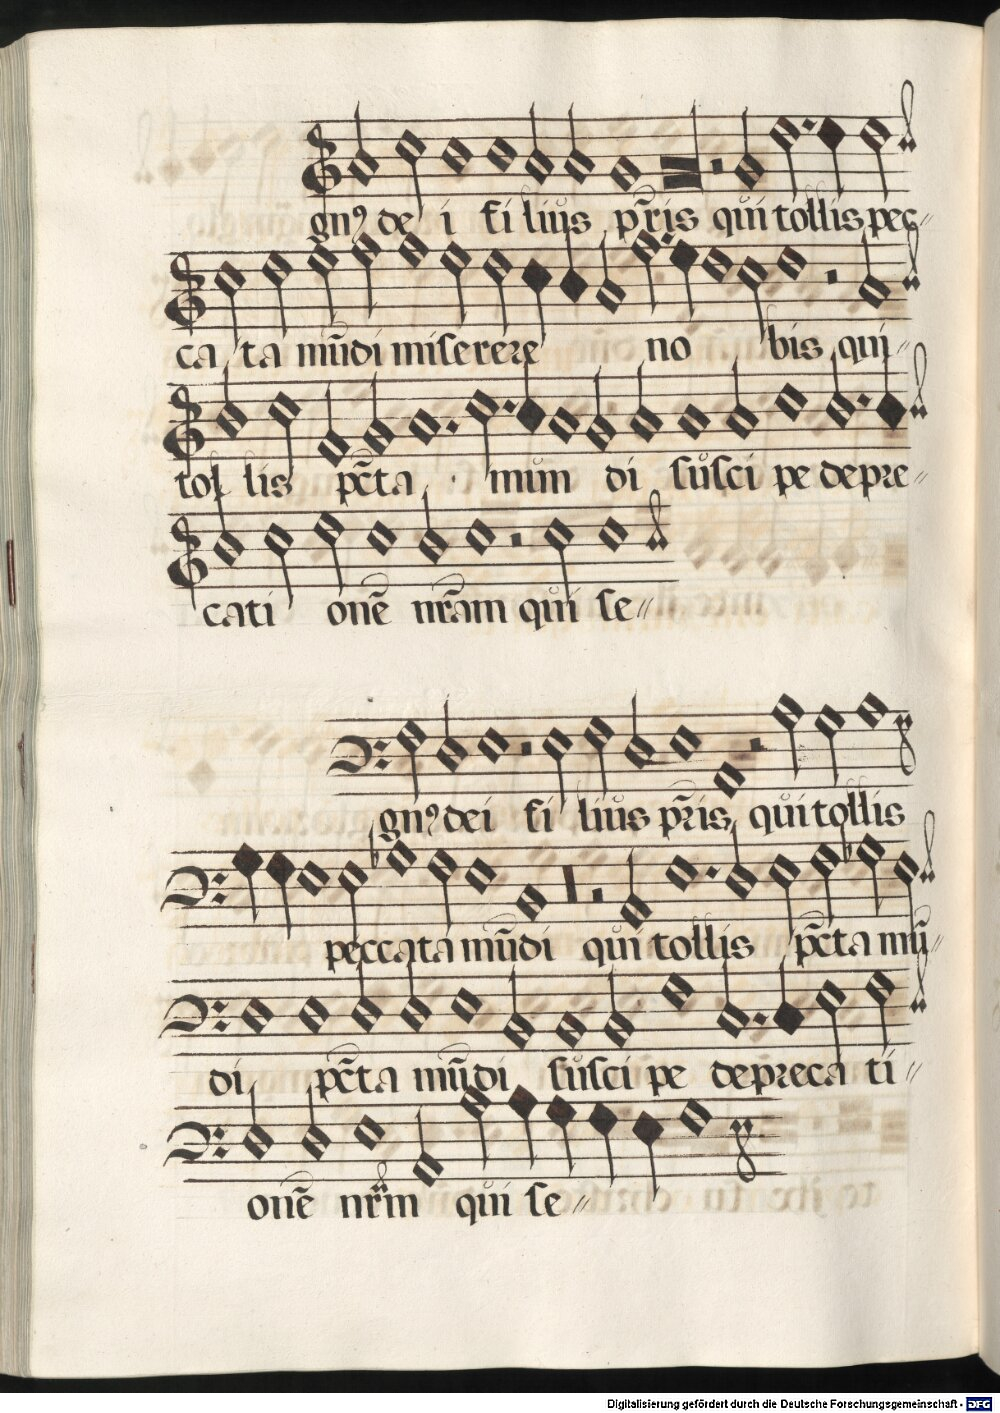 gnꝰ dei fi lius pr̄is qui tollis pec-
ca ta mūdi miserere no bis qui
tol lis pc̄ta mun di susci pe depre
cati onē nr̄am qui se
gnꝰ dei fi lius pr̄is qui tollis
peccata mūdi qui tollis pc̄ta mū
di pc̄ta mūdi susci pe depreca ti
onē nr̄m qui se
Digitalisierung gefördert durch die Deutsche Forschungsgemeinschaft - DFG